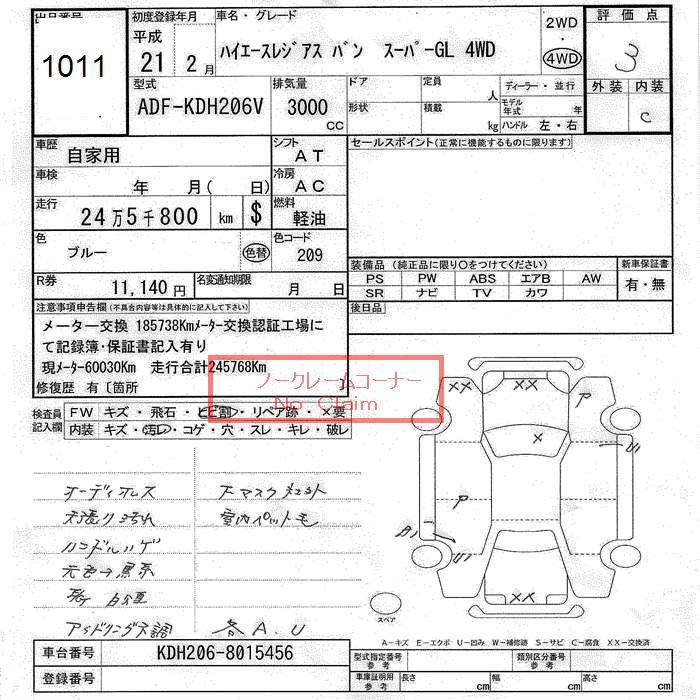 出品番号
1011
初度登録年月
平成
21 2月
車名・グレード
ハイエースレジアス バン スーパーGL 4WD
2WD
・
4WD
評価点
3
外装 内装
C
型式
ADF-KDH206V
排気量
3000
CC
ドア
定員
人
ディーラー・並行
形状
積載
kg
モデル年式 年
ハンドル 左・右
車歴
自家用
シフト
AT
車検
年 月( 日)
冷房
AC
走行
24万5千800 km $
燃料
軽油
色
ブルー
色替
色コード
209
R券
11,140円
名変通知期限
月 日
セールスポイント(正常に機能するものに限ります)
装備品 (純正品に限り〇をつけてください)
新車保証書
PS PW ABS エアB AW
有・無
SR ナビ TV カワ
後日品
注意事項申告欄(不具合内容等は具体的に記入して下さい)
メーター交換 185738Kmメーター交換認証工場に
て記録簿・保証書記入有り
現メーター60030Km 走行合計245768Km
修復歴 有〔箇所
ノークレームコーナー
No Claim
検査員
記入欄
FW キズ・飛石・ヒビ割・リペア跡・×要
内装 キズ・汚レ・コゲ・穴・スレ・キレ・破レ
オーディオレス
天張り汚れ
ハンドルハゲ
元色→黒系
アイドリング不調
下マスク
室内ペット毛
各A.U
XX
XX
ア
X
ア
XX
スペア
A-キズ E-エクボ U-凹み W-補修跡 S-サビ C-腐食 XX-交換済
車台番号
KDH206-8015456
登録番号
型式指定番号
参考
類別区分番号
参考
車庫証明用
参考
長さ cm
幅 cm
高さ cm